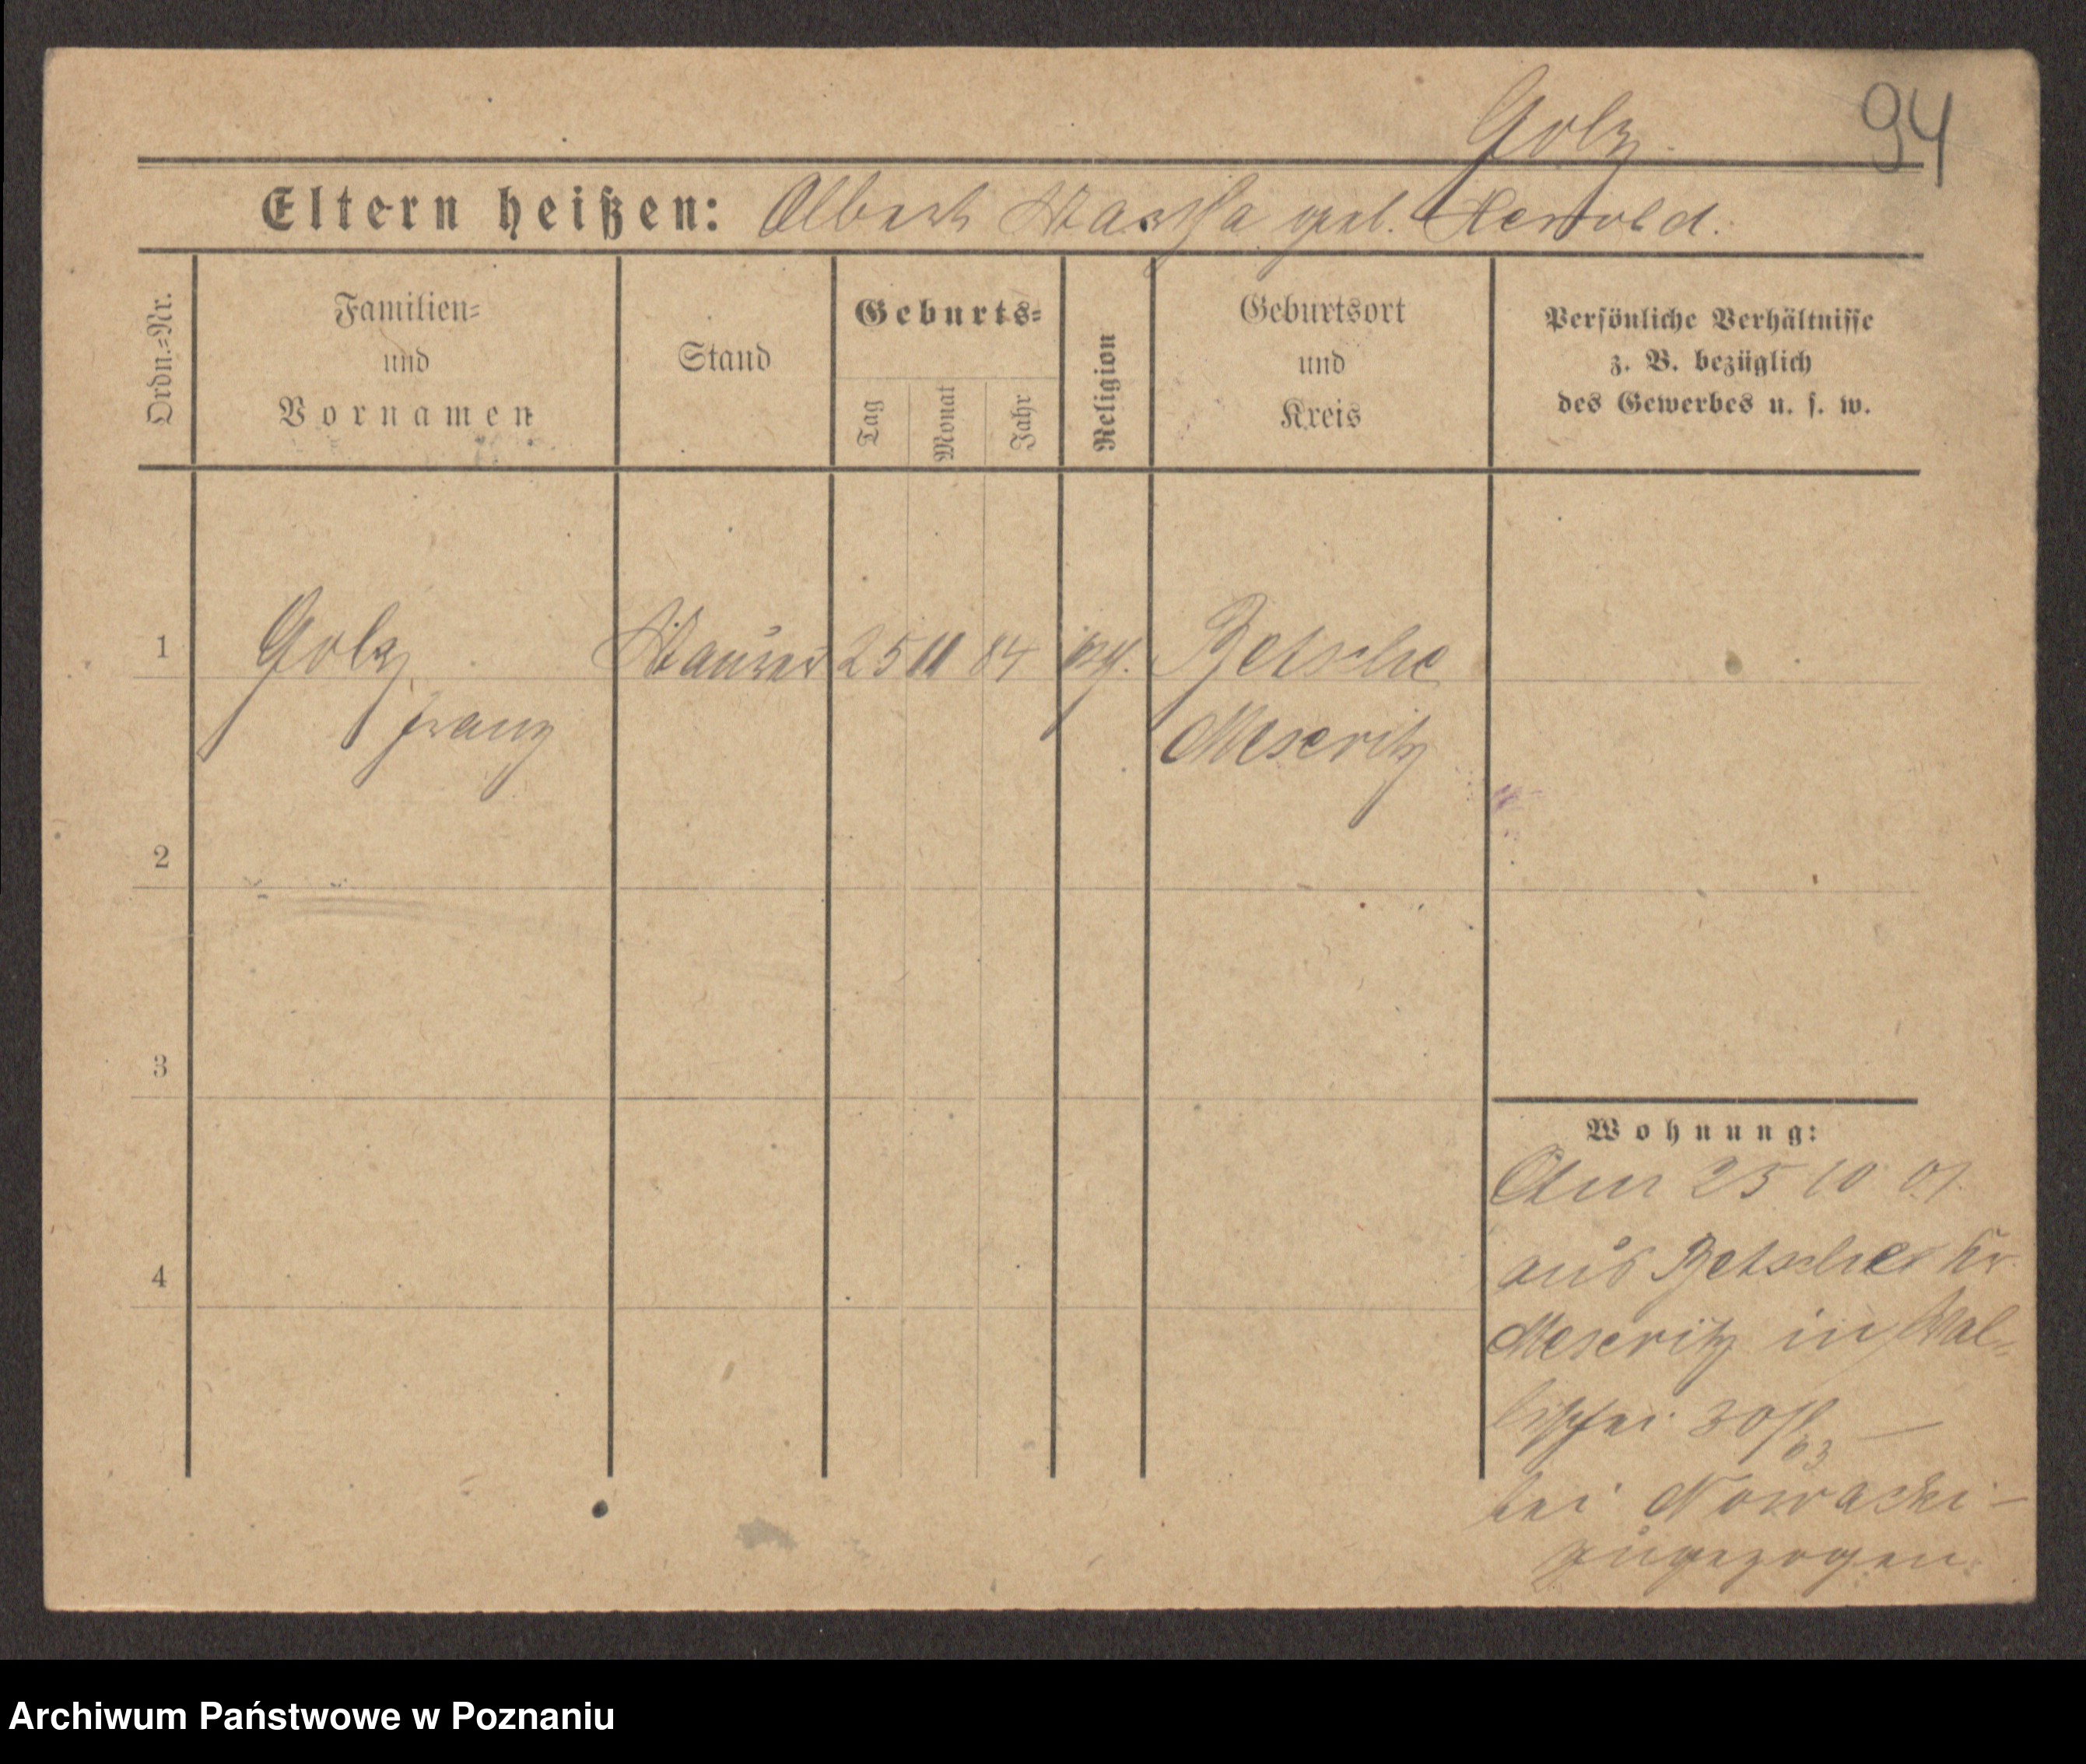 Golz
94
Eltern heißen: Albert Martha geb. Herold.
Ordn.-Nr.
Familien-
und
Vornamen
Stand
Geburts-
Tag
Monat
Jahr
Religion
Geburtsort
und
Kreis
Persönliche Verhältnisse
z. B. bezüglich
des Gewerbes u. s. w.
1
Golz
Franz
Maurer
25
11
84
Betsche
Meseritz
2
3
4
Wohnung:
Am 25 10 01
aus Betsche Kr
Meseritz in Wal-
lischei 30/31
03
bei Nowacki -
zugezogen.
Archiwum Państwowe w Poznaniu